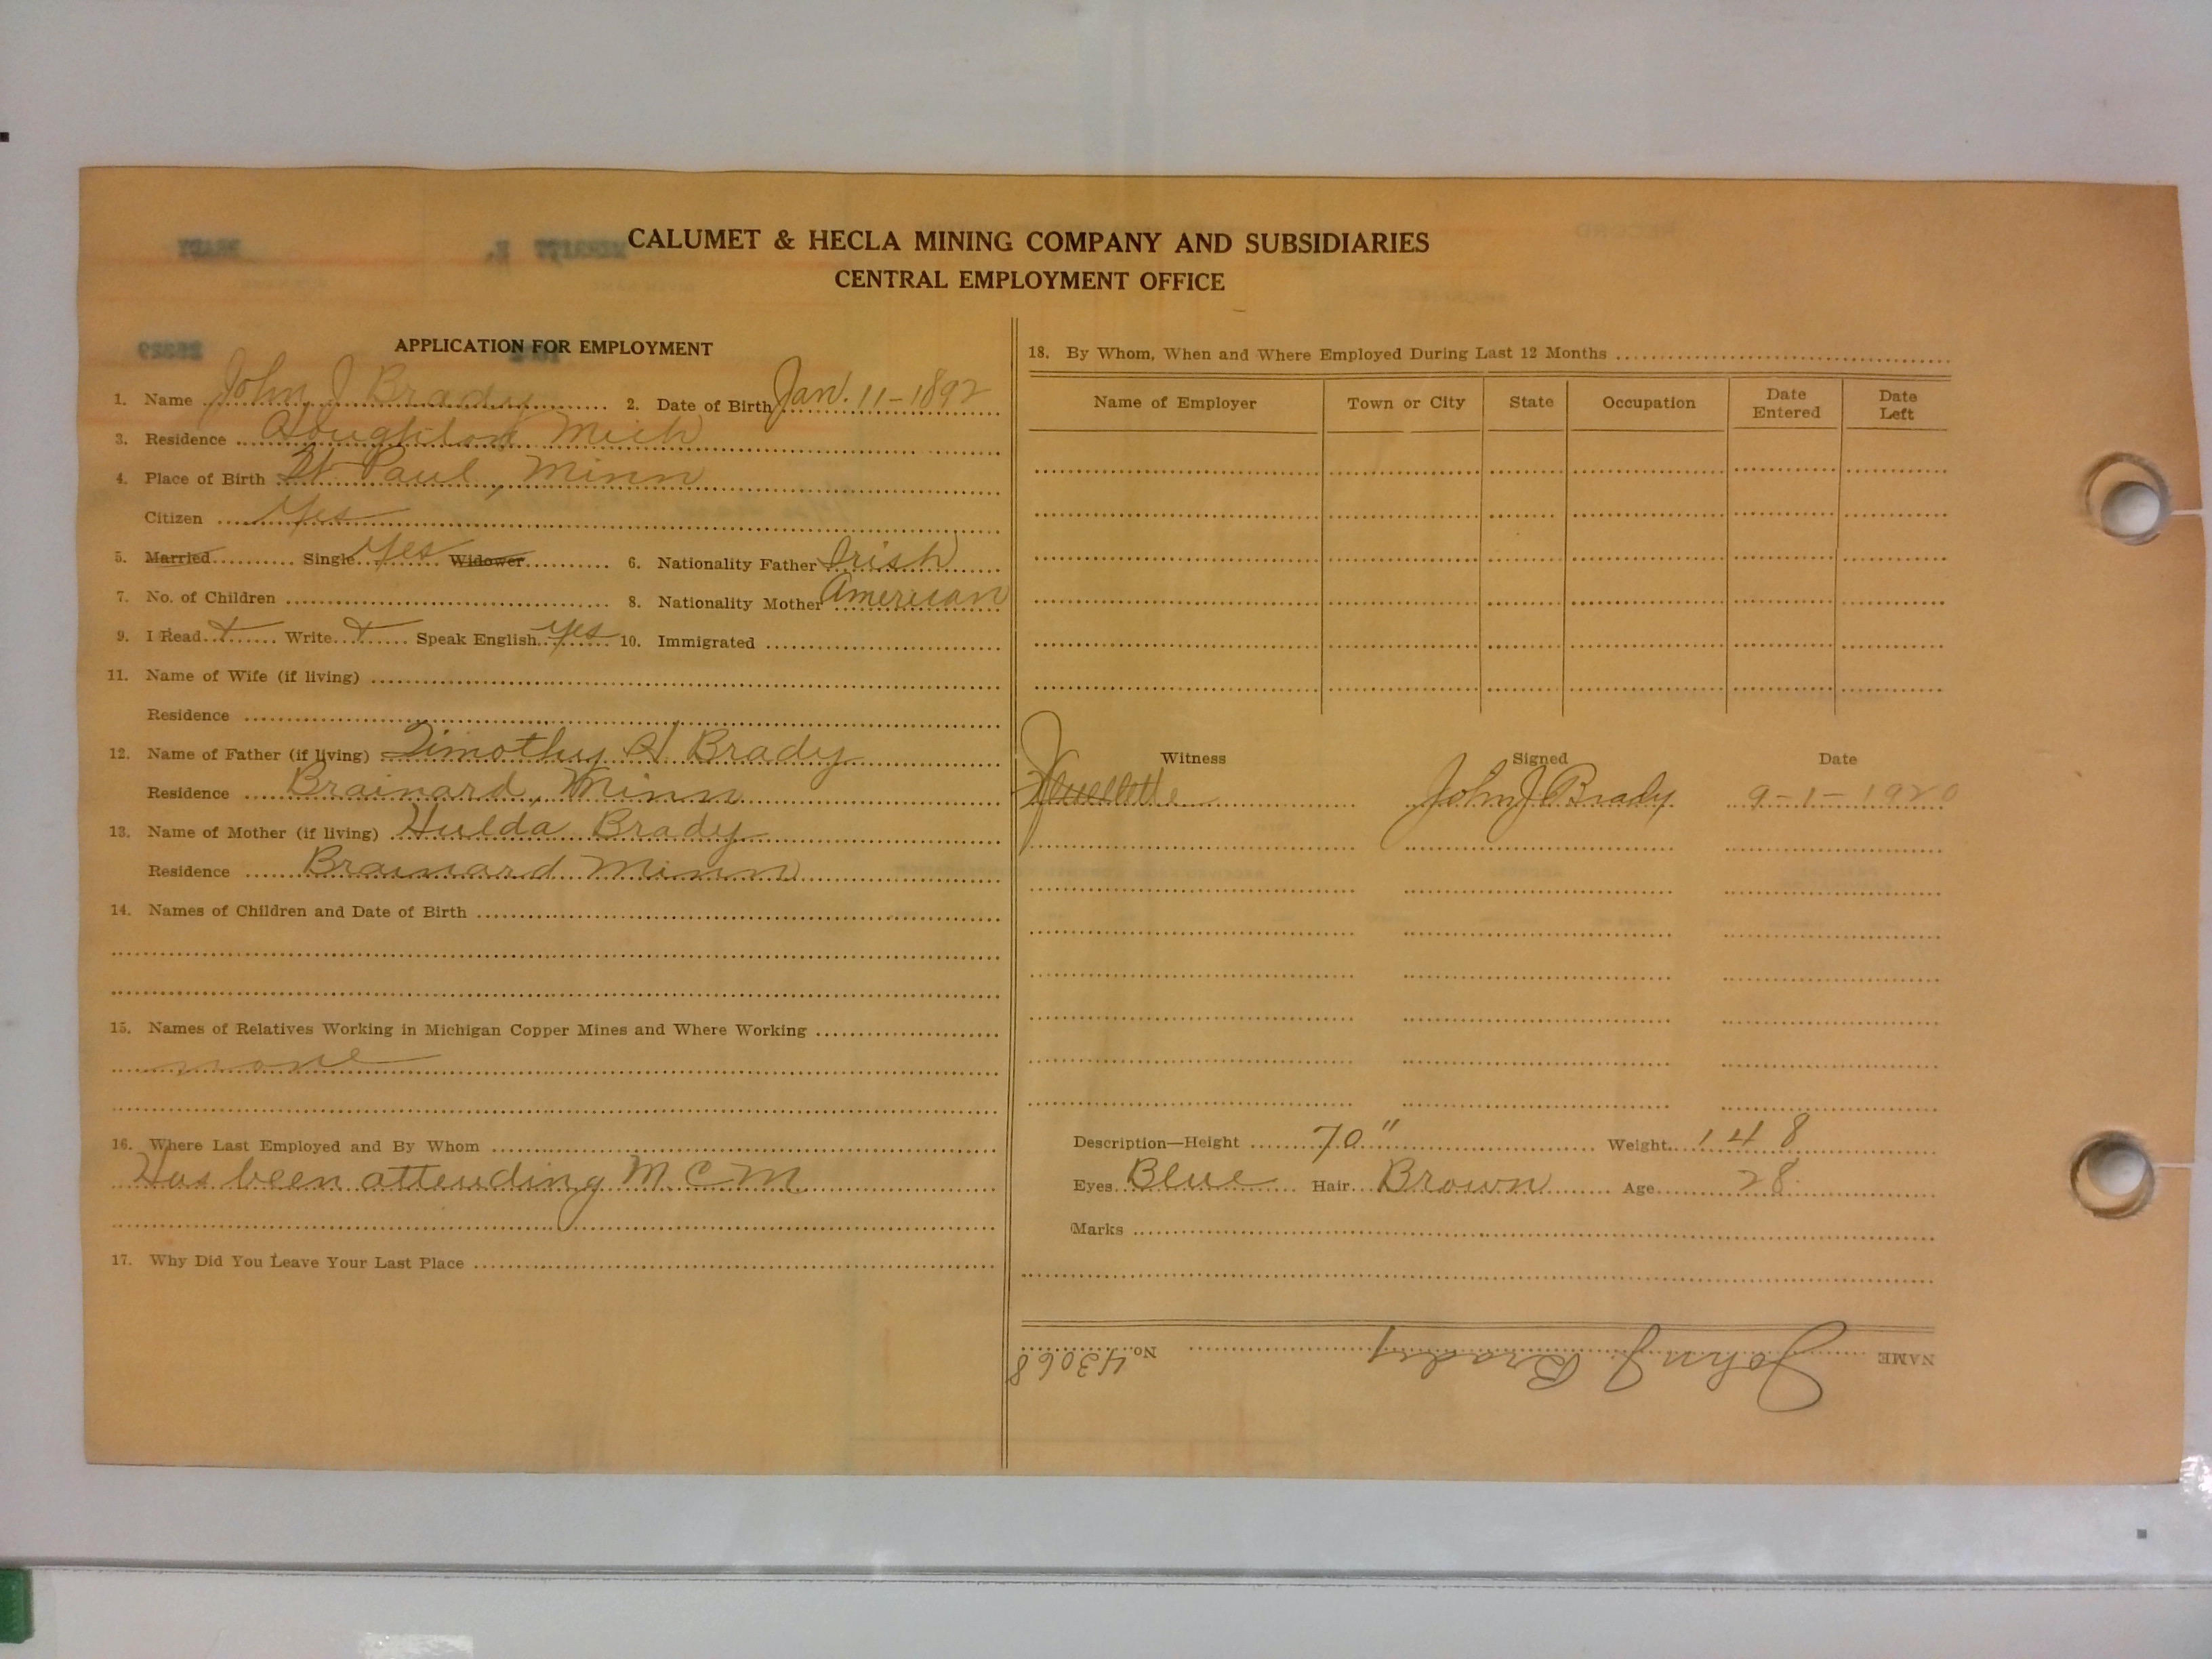 CALUMET & HECLA MINING COMPANY AND SUBSIDIARIES
CENTRAL EMPLOYMENT OFFICE
APPLICATION FOR EMPLOYMENT
1. Name John J Brady 2. Date of Birth Jan. 11-1892
3. Residence Houghton Mich
4. Place of Birth St Paul, Minn
Citizen Yes
5. Married Single Yes Widower 6. Nationality Father Irish
7. No. of Children 8. Nationality Mother American
9. I Read + Write + Speak English yes 10. Immigrated
11. Name of Wife (if living)
Residence
12. Name of Father (if living) Timothy H Brady
Residence Brainard, Minn
13. Name of Mother (if living) Hulda Brady
Residence Brainard Minn
14. Names of Children and Date of Birth
15. Names of Relatives Working in Michigan Copper Mines and Where Working
none
16. Where Last Employed and By Whom
Has been attending M C M
17. Why Did You Leave Your Last Place
18. By Whom, When and Where Employed During Last 12 Months
Name of Employer Town or City State Occupation Date Entered Date Left
Witness Signed Date
John J Brady 9-1-1920
Description—Height 70" Weight 148
Eyes Blue Hair Brown Age 28
Marks
NAME John J Brady No. 43068